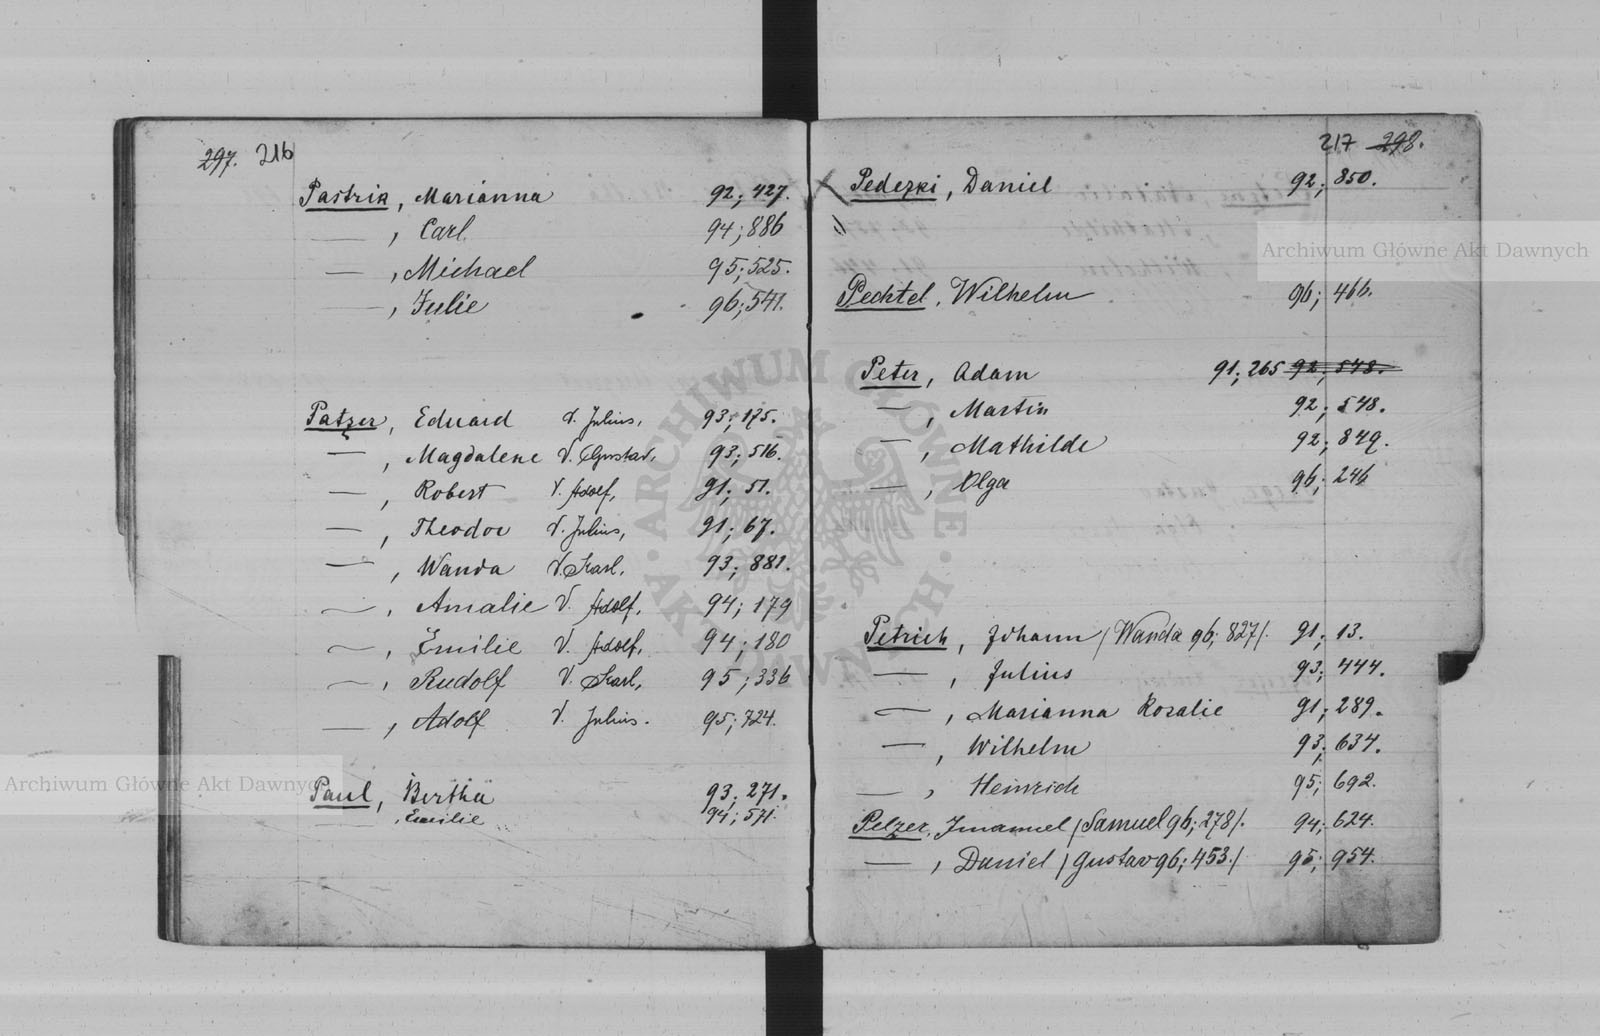 297. 216
Pastrik, Marianna 92; 427.
—, Carl. 94; 886
—, Michael 95; 525.
—, Julie 96; 541.
Patzer, Eduard V. Julius, 93; 175.
—, Magdalene V. Gustav, 93; 516.
—, Robert V. Adolf, 91; 51.
—, Theodor V. Julius, 91; 67.
—, Wanda V. Karl, 93; 881.
—, Amalie V. Adolf, 94; 179
—, Emilie V. Adolf, 94; 180
—, Rudolf V. Karl, 95; 336
—, Adolf V. Julius. 95; 724.
Paul, Bertha 93; 271.
—, Emilie 94; 571.
217 298.
Pedezki, Daniel 92; 850.
Pechtel, Wilhelm 96; 466.
Peter, Adam 91; 265 92; 548.
—, Martin 92; 548.
—, Mathilde 92; 849.
—, Olga 96; 246
Petrich, Johann /Wanda 96; 827/. 91; 13.
—, Julius 93; 444.
—, Marianna Rosalie 91; 289.
—, Wilhelm 93; 634.
—, Heinrich 95; 692.
Pelzer, Imanuel /Samuel 96; 278/. 94; 624.
—, Daniel /Gustav 96; 453./ 95; 954.
Archiwum Główne Akt Dawnych
Archiwum Główne Akt Dawnych
ARCHIWUM GŁÓWNE AKT DAWNYCH